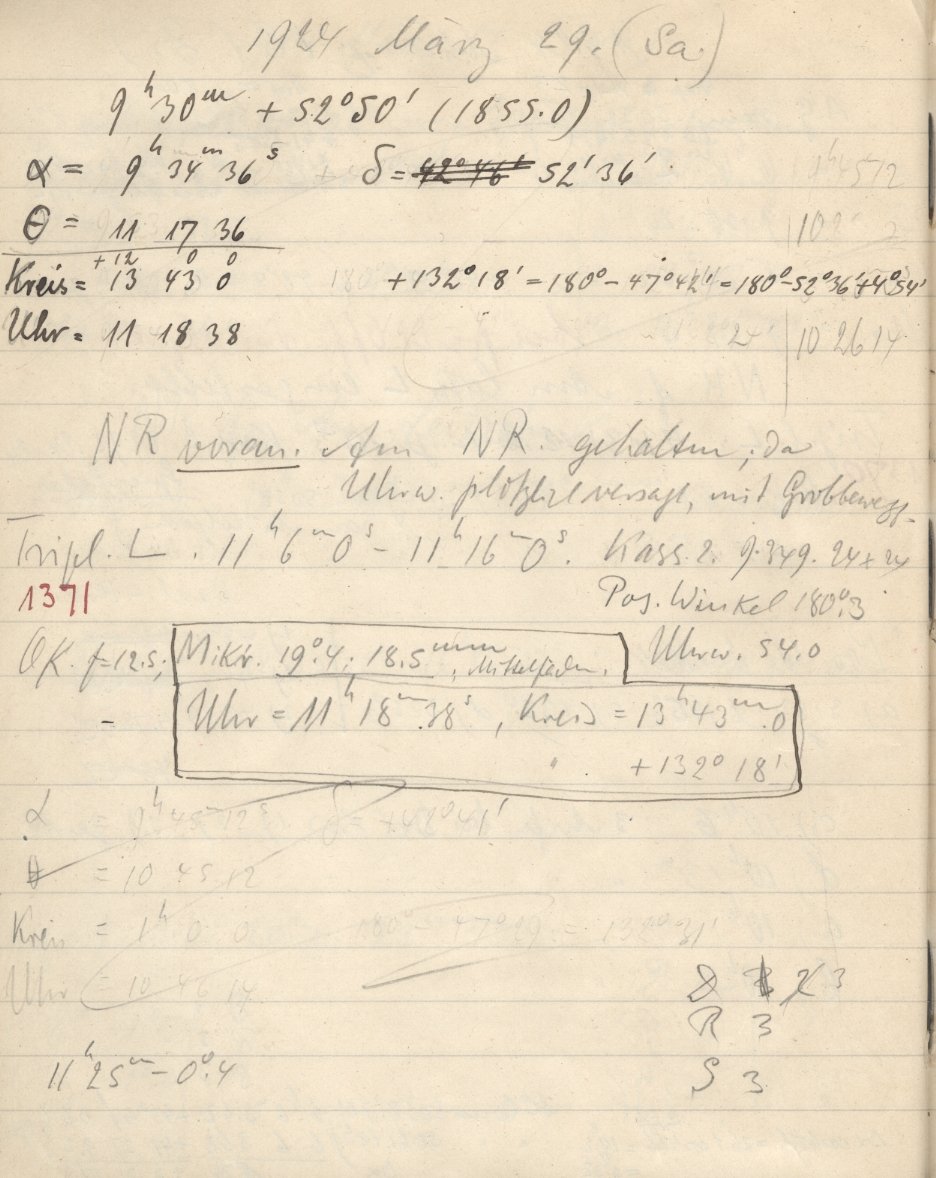 1924 März 29. (Sa.)
9ʰ30ᵐ + 52°50' (1855.0)
α = 9ʰ 34ᵐ 36ˢ δ = 42°46' 52' 36'
θ = 11 17 36
+12 0 0
Kreis = 13 43 0 +132°18' = 180° - 47°42' = 180° - 52°36' + 4°54'
Uhr = 11 18 38 10 26 14
NR voran. Am NR. gehalten, da
Uhrw. plötzlich versagt, mit Grobbeweg.
Tripl. L. 11ʰ6ᵐ0ˢ - 11ʰ16ᵐ0ˢ. Kass. 2. 9.349. 24 x 24
1371 Pos. Winkel 180°.3
OK. f = 12.5; Mikr. 19°.4; 18.5ᵐᵐ, Mittelfaden. Uhrw. 54.0
- Uhr = 11ʰ 18ᵐ 38ˢ, Kreis = 13ʰ 43ᵐ.0
" +132° 18'
α 9ʰ 45ᵐ 12ˢ δ = +42°41'
θ = 10 45 12
Kreis = 1ʰ 0 0 180° - 47°29' = 132°31'
Uhr = 10 46 14
D 3
R 3
S 3
11ʰ25ᵐ - 0°.4